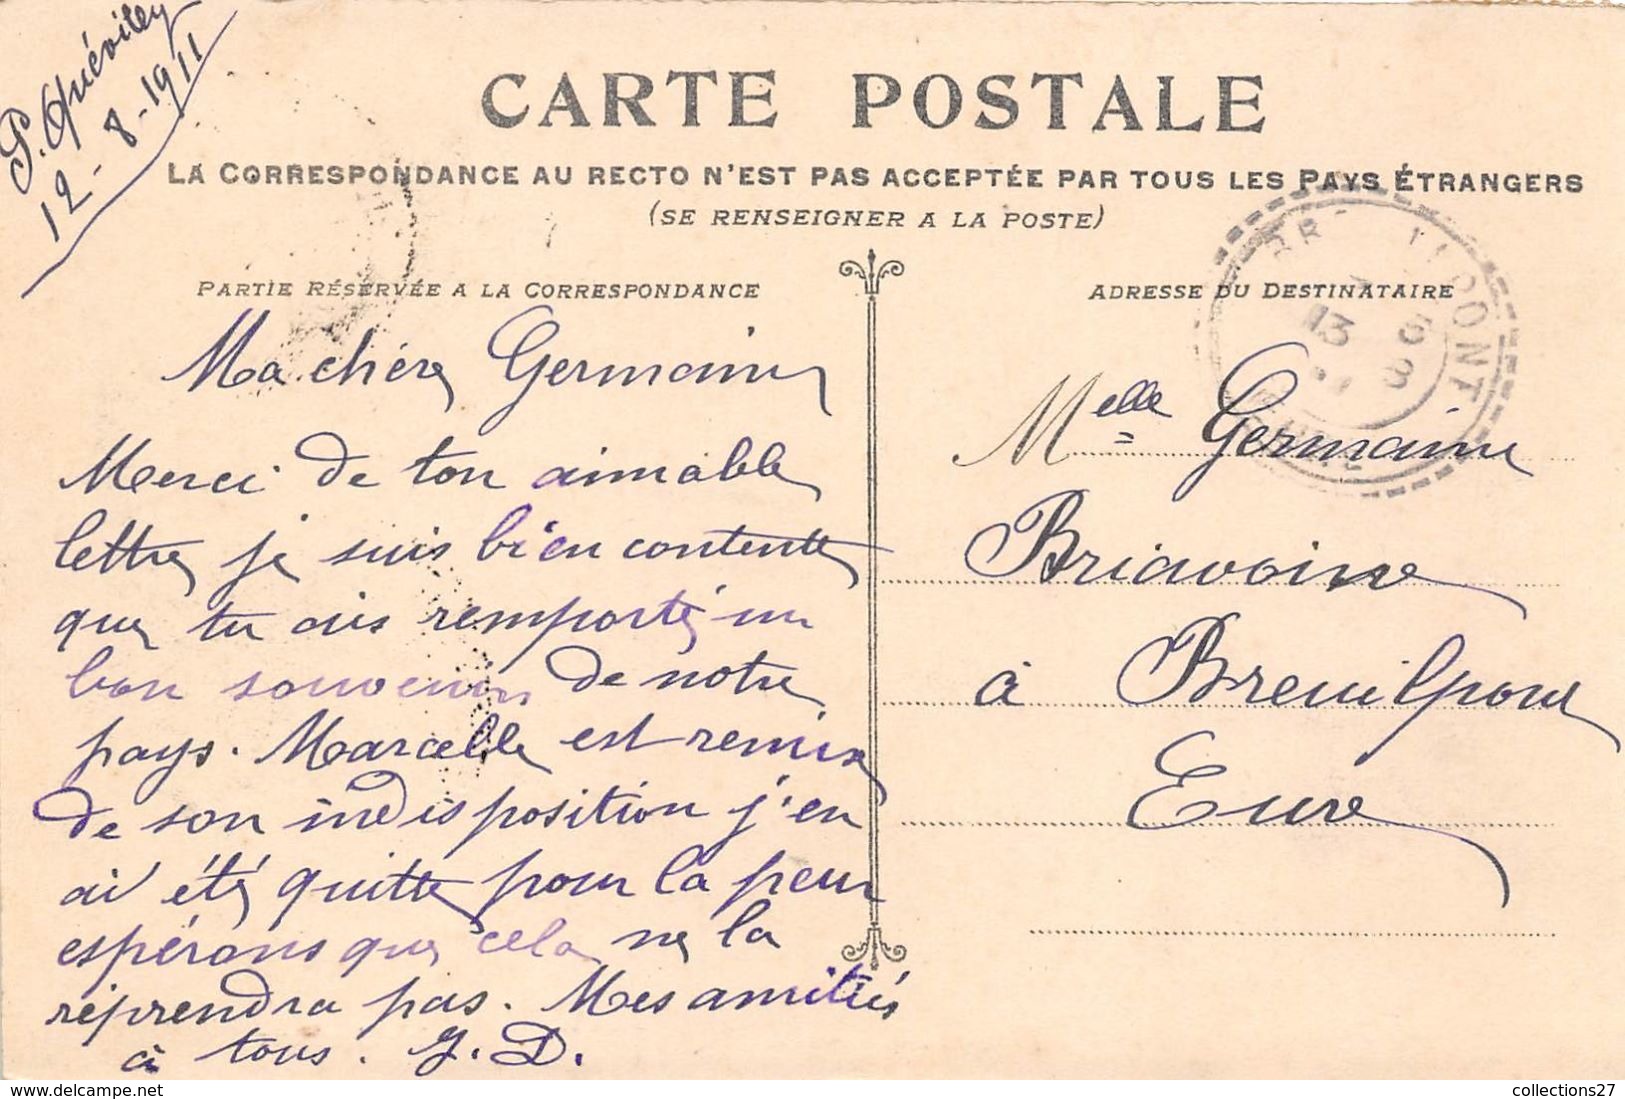 P. Quévilly
12-8-1911
CARTE POSTALE
LA CORRESPONDANCE AU RECTO N'EST PAS ACCEPTÉE PAR TOUS LES PAYS ÉTRANGERS
(SE RENSEIGNER A LA POSTE)
PARTIE RÉSERVÉE A LA CORRESPONDANCE
Ma chère Germaine
Merci de ton aimable
lettre je suis bien contente
que tu ais remporté un
bon souvenir de notre
pays. Marcelle est remise
de son indisposition j'en
ai été quitte pour la peur
espérons que cela ne la
réprendra pas. Mes amitiés
à tous. J. D.
ADRESSE DU DESTINATAIRE
13 8
EURE
Melle Germaine
Briavoine
à Breuilpont
Eure
www.delcampe.net
collections27